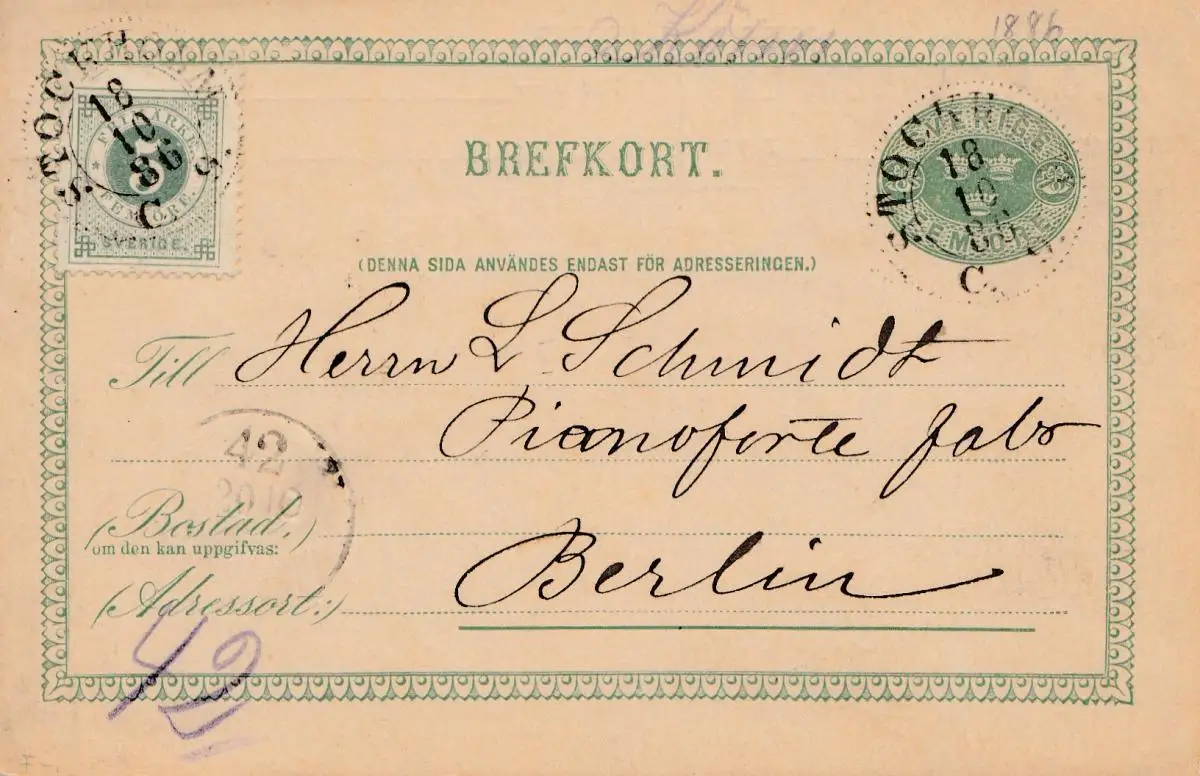 1886
STOCKHOLM
18
10
86
C
S.
FRIMÄRKE
5
FEM ÖRE
SVERIGE.
BREFKORT.
STOCKH
SVERIGE
18
10
86
C.
FEM ÖRE
(DENNA SIDA ANVÄNDES ENDAST FÖR ADRESSERINGEN.)
Till Herrn L Schmidt
Pianoforte fabr
42
20 10
(Bostad,)
om den kan uppgifvas:
Berlin
(Adressort:)
42